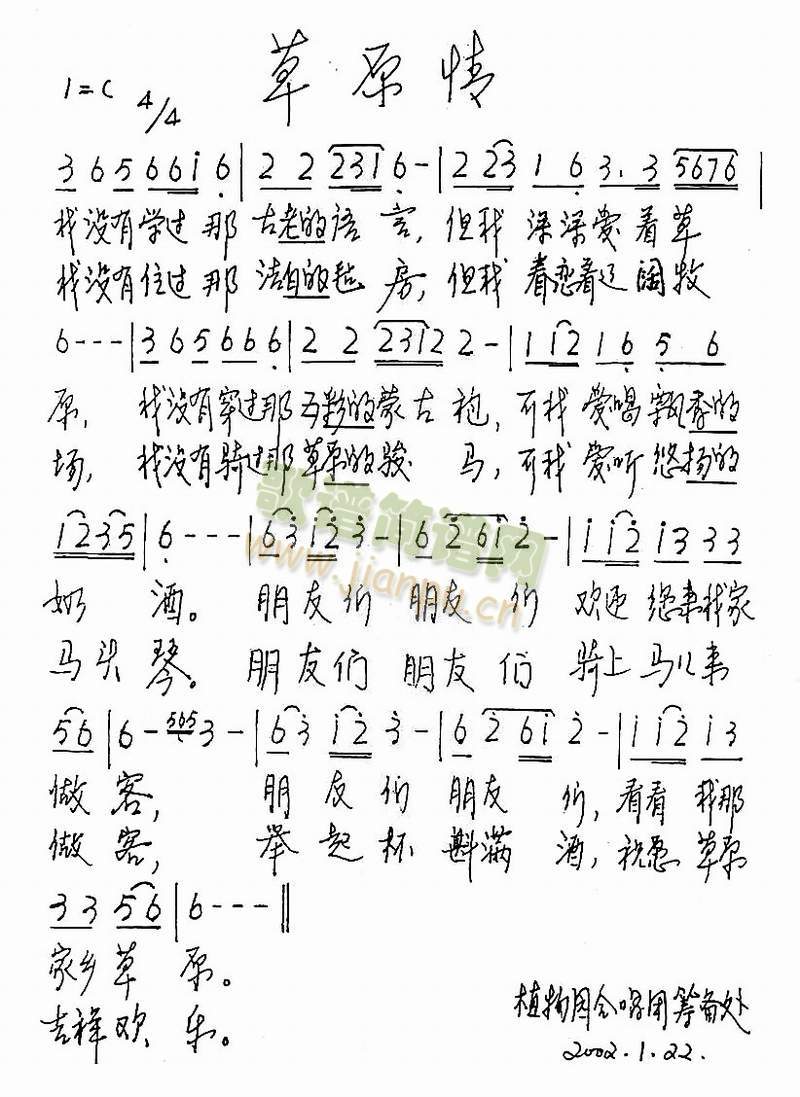 草原情
1=C 4/4
3 6 5 6 6 i 6 | 2 2 2 3 1 6 - | 2 2 3 1 6 3. 3 5 6 7 6 |
我没有学过那 古老的语 言, 但我 深深爱着草
我没有住过那 洁白的毡 房, 但我 眷恋着辽阔牧
6 - - - | 3 6 5 6 6 6 | 2 2 2 3 1 2 2 - | 1 1 2 1 6 5 6
原, 我没有穿过那 五彩的蒙古 袍, 可我 爱喝飘香的
场, 我没有骑过那 草原的骏 马, 可我 爱听悠扬的
1 2 3 5 | 6 - - - | 6 3 i 2 3 - | 6 2 6 i 2 - | i i 2 i 3 3 3
奶 酒。 朋友们 朋友 们 欢迎 您来我家
马头 琴。 朋友们 朋友 们 骑上 马儿来
5 6 | 6 - 565 3 - | 6 3 i 2 3 - | 6 2 6 i 2 - | i i 2 i 3
做 客, 朋 友 们 朋友 们, 看看 我那
做 客, 举 起 杯 斟满 酒, 祝愿 草原
3 3 5 6 | 6 - - - ||
家乡 草 原。
吉祥 欢 乐。
植物园合唱团筹备处
2002.1.22.
歌谱简谱网
www.jianpu.cn